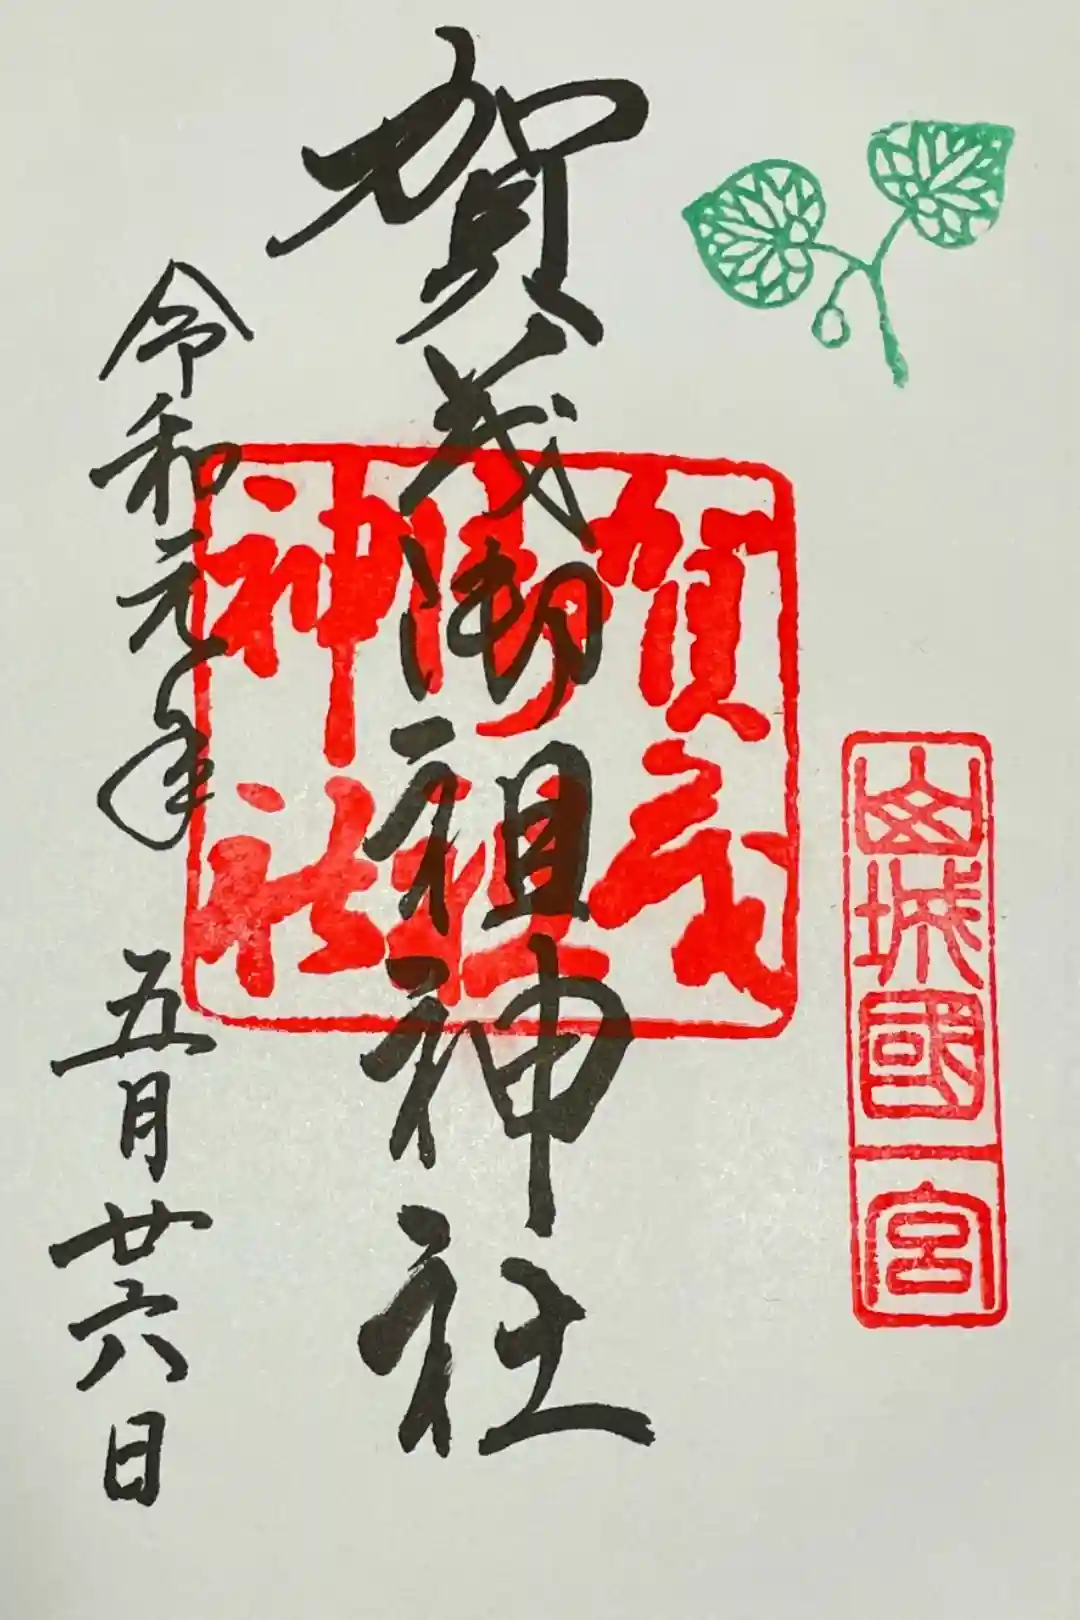 山城國一宮
賀茂御祖神社
賀茂御祖神社
令和元年 五月廿六日